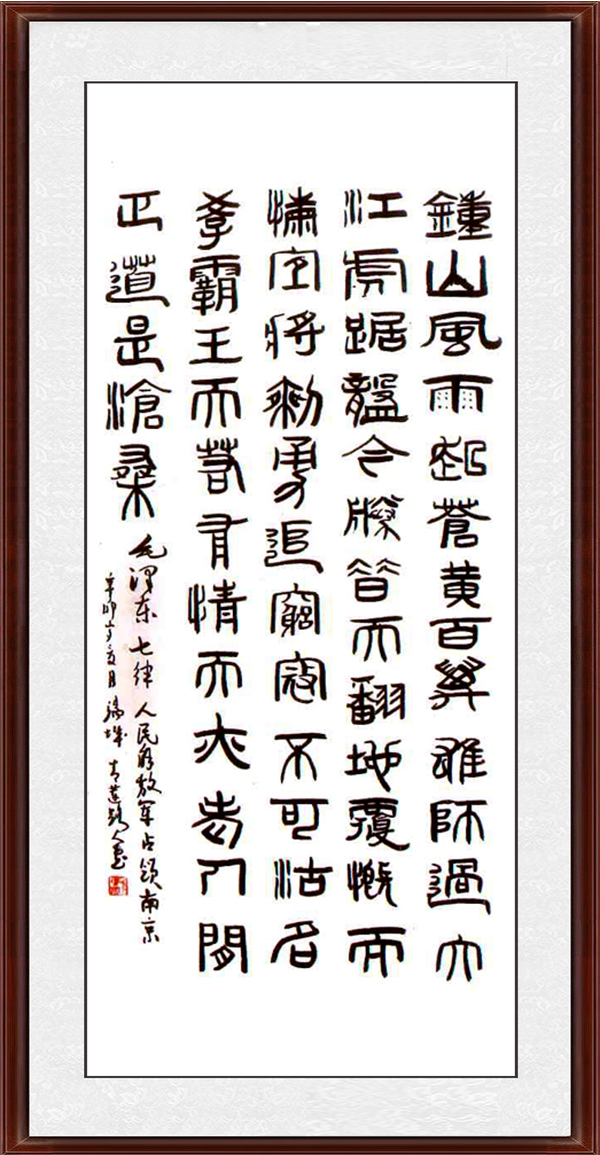 鍾山風雨起蒼黃百萬雄師過大
江虎踞龍今勝昔天翻地覆慨而
慷宜將剩勇追窮寇不可沽名
學霸王天若有情天亦老人間
正道是滄桑
毛澤东七律人民解放军占领南京
辛卯年亥月